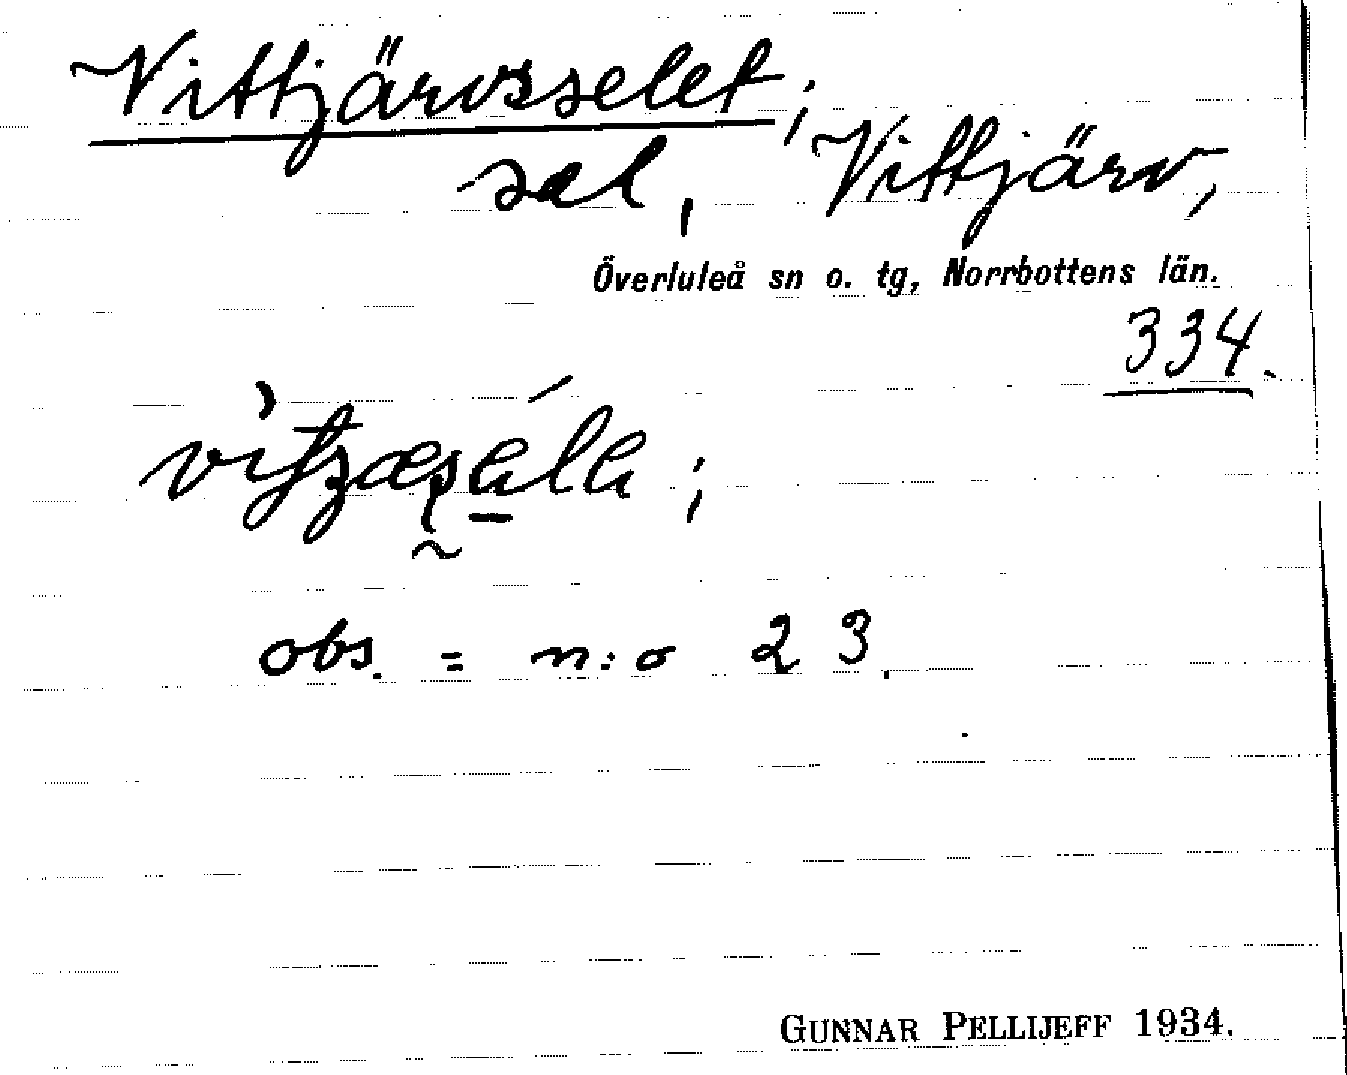 Vittjärvsselet;
sel, Vittjärv,
Överluleå sn o. tg, Norrbottens län.
334.
obs. = n:o 23.
GUNNAR PELLIJEFF 1934.